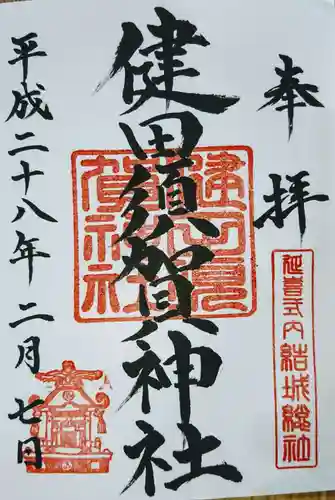 奉拝
延喜式内結城総社
健田須賀神社
健田須賀神社
平成二十八年二月七日